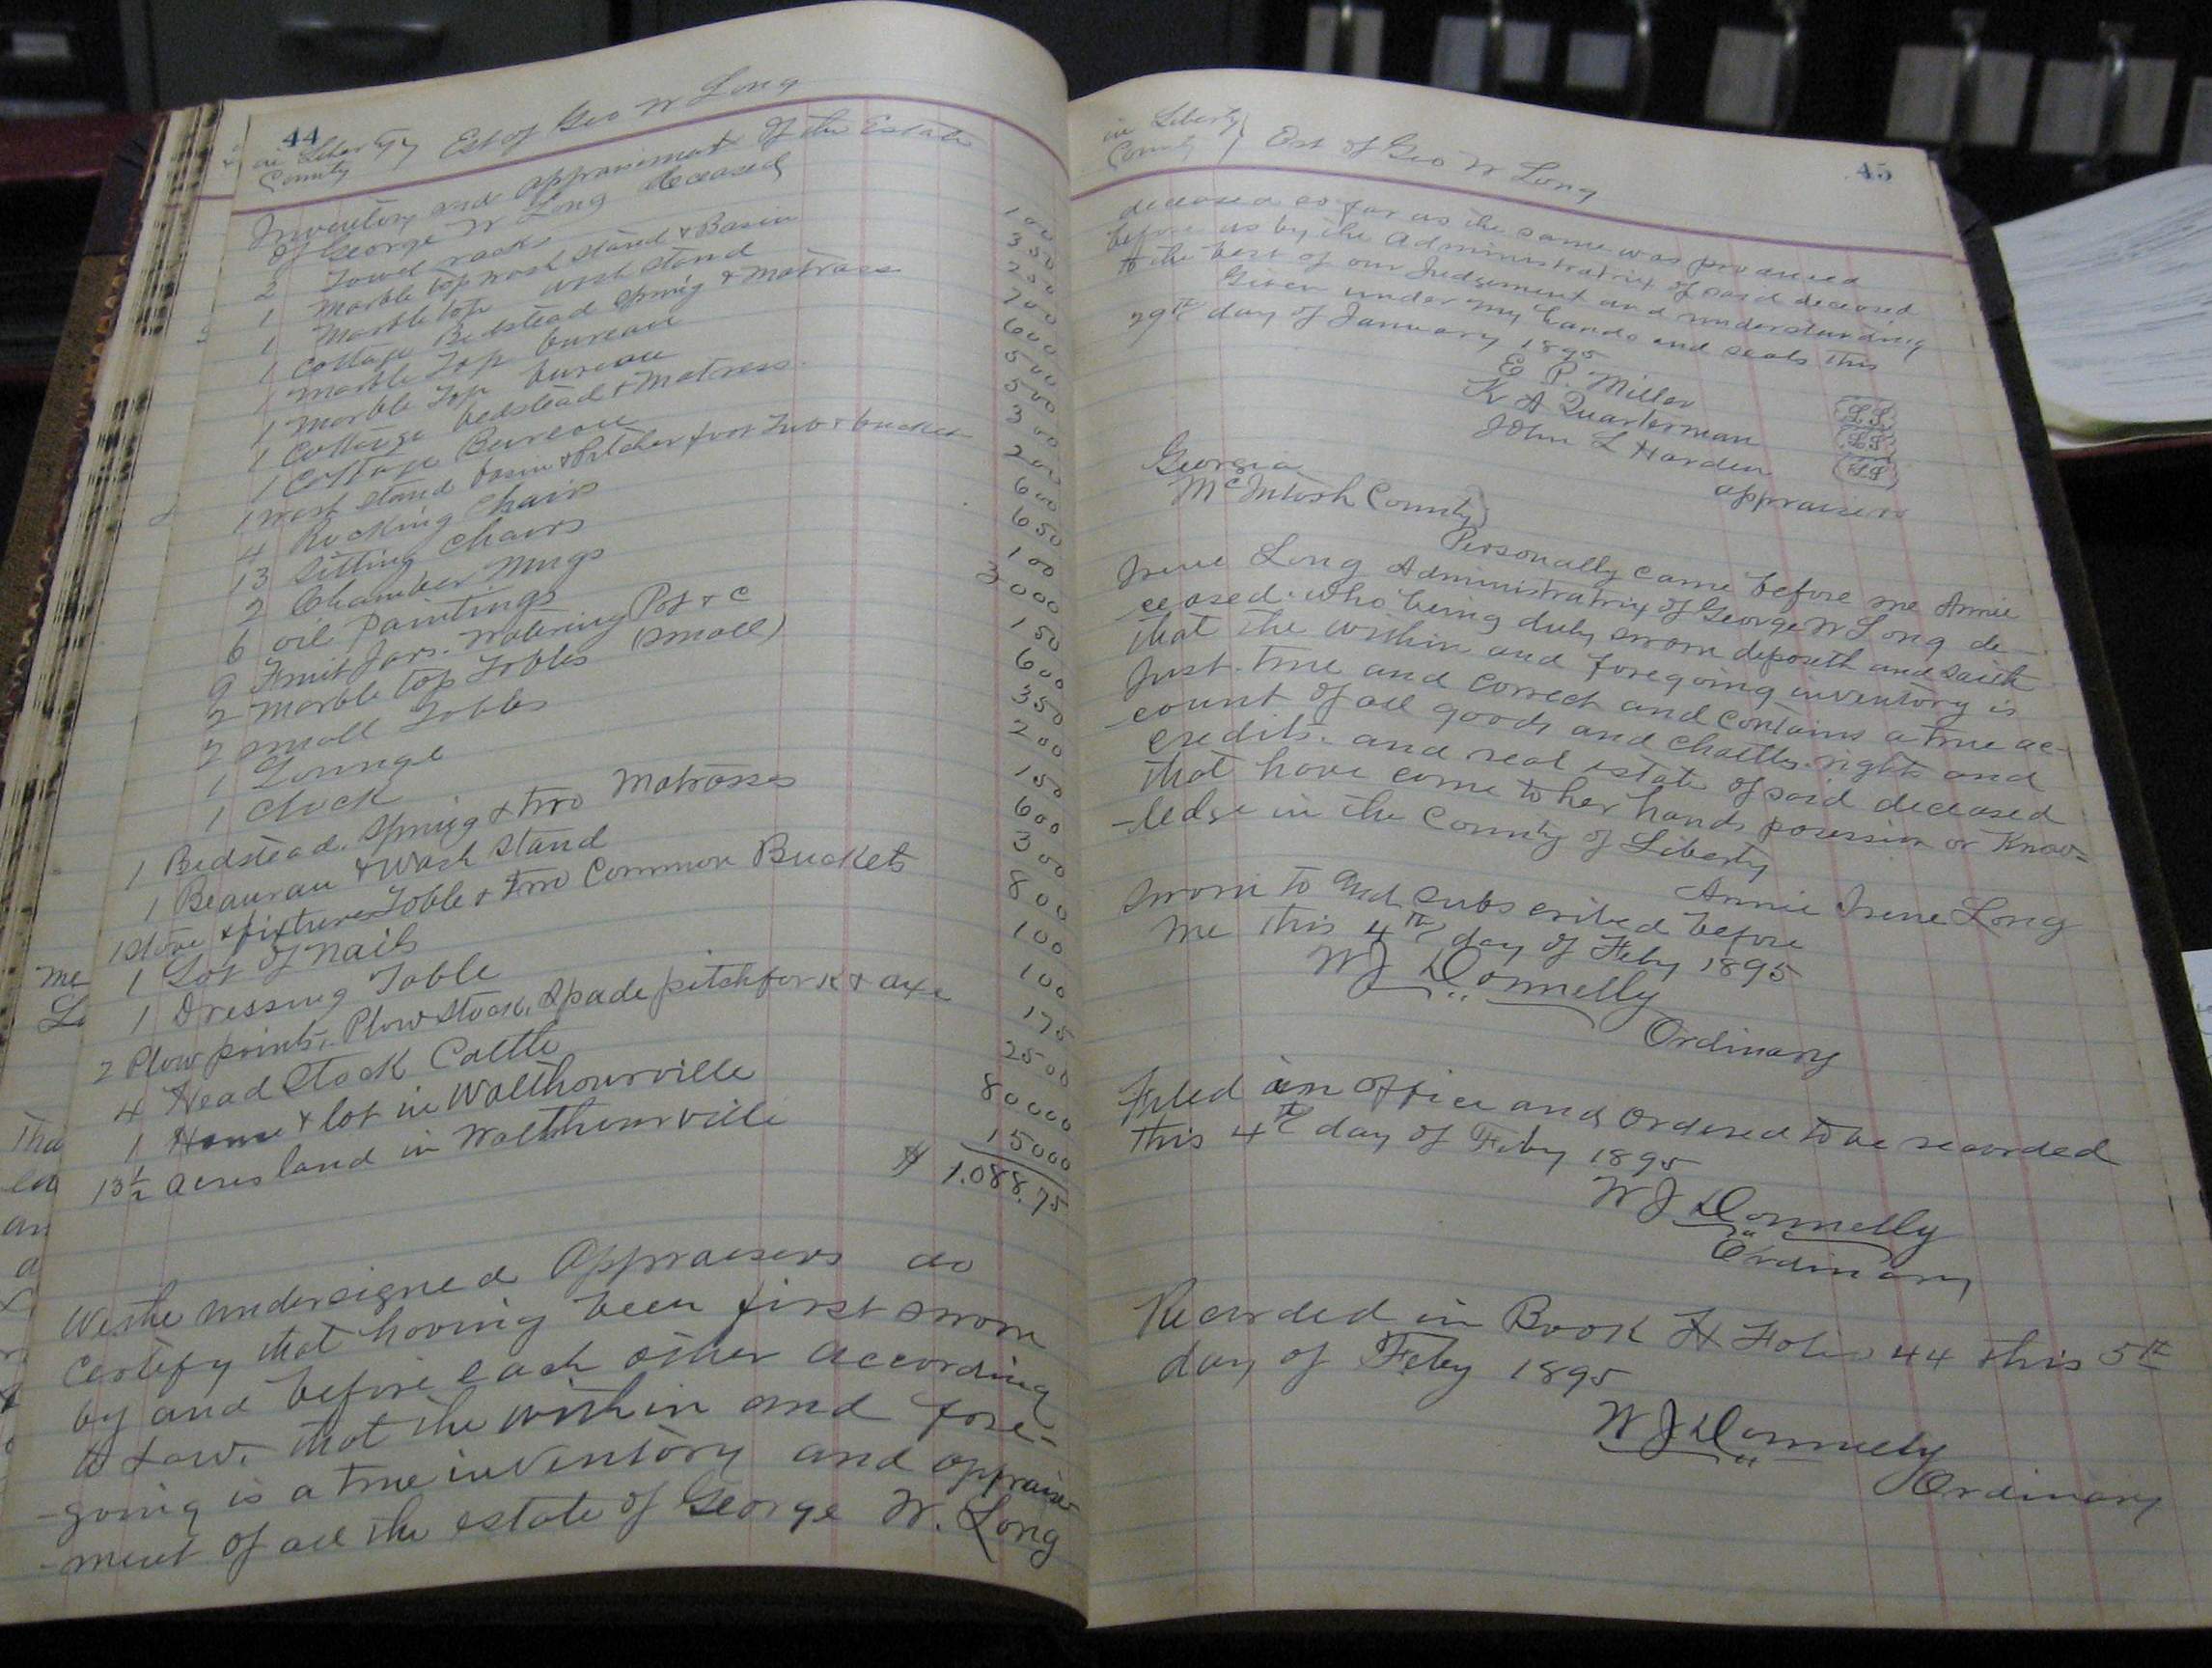 44
in Liberty
County
Est of Geo W Long
Inventory and appraisement of the Estate
of George W Long deceased
2 Towel racks 100
1 Marble top wash stand & Basin 350
1 Marble top wash stand 250
1 Cottage Bedstead Spring & Matrass 700
1 Marble Top bureau 600
1 Marble Top bureau 500
1 Cottage bedstead & Matress. 500
1 Cottage Bureau 300
1 Wash stand basin & Pitcher foot Tub & bucket 200
4 Rocking Chairs 600
13 Sitting Chairs 650
2 Chamber Mugs 100
6 oil Paintings 3000
9 Fruit Jars. Watering Pot & c 150
2 Marble top Tables (small) 600
2 small Tables 350
1 Lounge 200
1 Clock 150
1 Bedstead. Spring & two Matrasses 600
1 Beaurau & Wash Stand 300
1 Stove & fixtures Table & two Common Buckets 800
1 Lot of nails 100
1 Dressing Table 100
2 Plow points, Plow Stock, Spade pitchfork & axe 175
4 Head Stock Cattle 2500
1 House & lot in Walthourville 80000
13½ acres land in Walthourville 15000
$ 1.088.75
We the undersigned Appraisers do
Certify that having been first sworn
by and before each other according
to Law. that the within and fore-
-going is a true inventory and appraise
-ment of all the estate of George W. Long
in Liberty
County
Est of Geo W Long
45
deceased so far as the same was produced
before us by the Administratrix of said deceased
to the best of our Judgement and understanding
Given under my hands and seals this
29th day of January 1895
E P. Miller LS
K A Quarterman LS
John L Harden LS
appraisers
Georgia
McIntosh County)
Personally came before me Annie
Irene Long Administratrix of George W Long de-
ceased. who being duly sworn deposeth and saith
that the within and foregoing inventory is
Just. true and correct and contains a true ac-
-count of all goods and chattles. right and
credits. and real estate of said deceased
that have come to her hands posession or Know=
-ledge in the County of Liberty
Annie Irene Long
Sworn to and subscribed before
me this 4th day of Feby 1895
W J Donnelly
Ordinary
Filed in office and Ordered to be recorded
this 4th day of Feby 1895
W J Donnelly
Ordinary
Recorded in Book H Folio 44 this 5th
day of Feby 1895
W J Donnelly
Ordinary